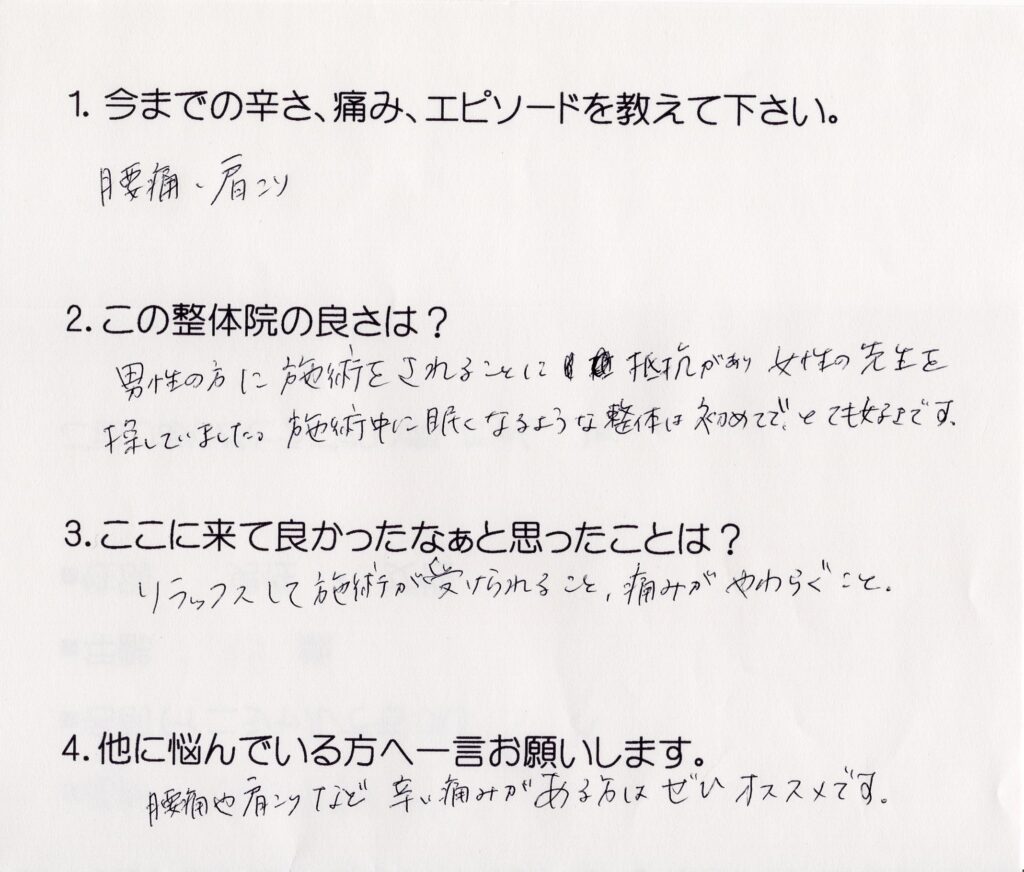 1. 今までの辛さ、痛み、エピソードを教えて下さい。
腰痛・肩こり
2. この整体院の良さは？
男性の方に施術をされることに 抵抗があり 女性の先生を
探していました。施術中に眠くなるような整体は初めてで、とても好きです。
3. ここに来て良かったなぁと思ったことは？
リラックスして施術が受けられること、痛みがやわらぐこと。
4. 他に悩んでいる方へ一言お願いします。
腰痛や肩こりなど 辛い痛みがある方は ぜひ オススメです。